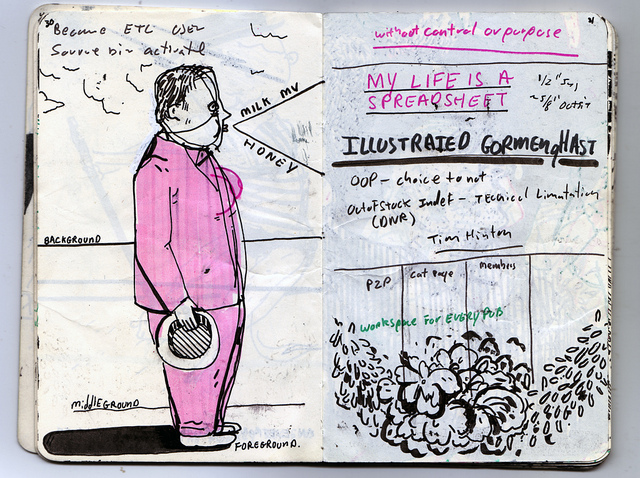 Become ETL USER
Source bin activate
MILK MY
HONEY
BACKGROUND
middleGROUND
FOREGROUND.
without control or purpose
MY LIFE IS A
SPREADSHEET
1/2"
5/8"
ILLUSTRATED GORMENgHAST
OOP - choice to not
OutofStock Indef - TECnical Limitation
(DNR)
Tim Hinton
P2P
cat page
members
workspace for EVERY PUB